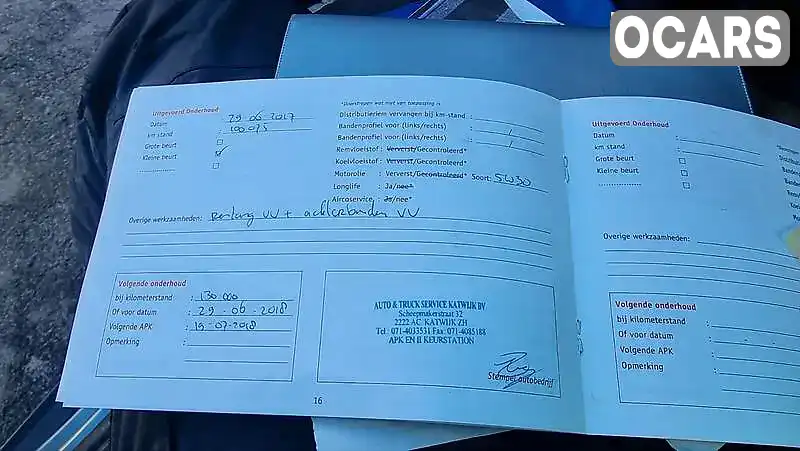 OCARS
Uitgevoerd Onderhoud
Datum : 29-06-2017
km stand : 100.075
Grote beurt
Kleine beurt
*Doorstrepen wat niet van toepassing is
Distributieriem vervangen bij km-stand :
Bandenprofiel voor (links/rechts) : /
Bandenprofiel voor (links/rechts) : /
Remvloeistof : Ververst/Gecontroleerd*
Koelvloeistof : Ververst/Gecontroleerd*
Motorolie : Ververst/Gecontroleerd* Soort: 5W30
Longlife : Ja/nee*
Aircoservice : Ja/nee*
Overige werkzaamheden: + achterbanden VV
Volgende onderhoud
bij kilometerstand : 130 000
Of voor datum : 29-06-2018
Volgende APK : 19-07-2018
Opmerking :
AUTO & TRUCK SERVICE KATWIJK BV
Scheepmakerstraat 32
2222 AC KATWIJK ZH
Tel : 071-4033531 Fax : 071-4085188
APK EN II KEURSTATION
Stempel autobedrijf
16
Uitgevoerd Onderhoud
Datum :
km stand :
Grote beurt
Kleine beurt
Overige werkzaamheden:
Volgende onderhoud
bij kilometerstand :
Of voor datum :
Volgende APK :
Opmerking :